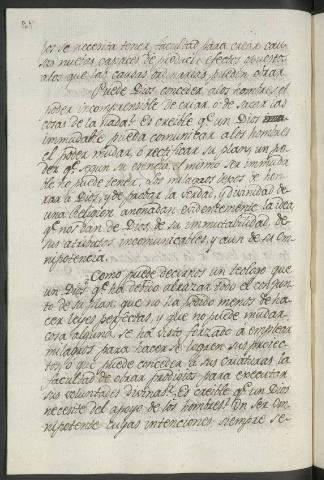 yes se necesita tener facultad para crear cau-
sas nuebas capaces de producir efectos opuestos
a los que las causas ordinarias pueden obrar.
Puede Dios conceder a los hombres el
poder incomprensible de criar ó de sacar las
cosas de la nada? Es creible qe. un Dios
immudable pueda comunicar a los hombres
el poder mudar, ó rectificar su plan, un po-
der qe. segun su esencia el mismo ser immuda
ble no puede tener? Los milagros lejos de hon-
rar a Dios, y de probar la verdad, y divinidad de
una Religion anonadan evidentemente la idea
qe. nos dan de Dios, de su immutabilidad, de
sus atributos incomunicables, y aun de su Om
nipotencia.
¿Como puede decirnos un teologo que
un Dios qe. ha debido abrazar todo el conjun
to de su plan, que no ha podido menos de ha-
cer leyes perfectas, y que no puede mudar
cosa alguna, se ha visto forzado a emplear
milagros para hacer se logren sus proyec-
tos, o que puede conceder a sus criaturas la
facultad de obrar prodigios para executar
sus voluntades divinas? Es creible qe. un Dios
necesite del apoyo de los hombres? Un Ser Om
nipotente cuyas intenciones siempre se-